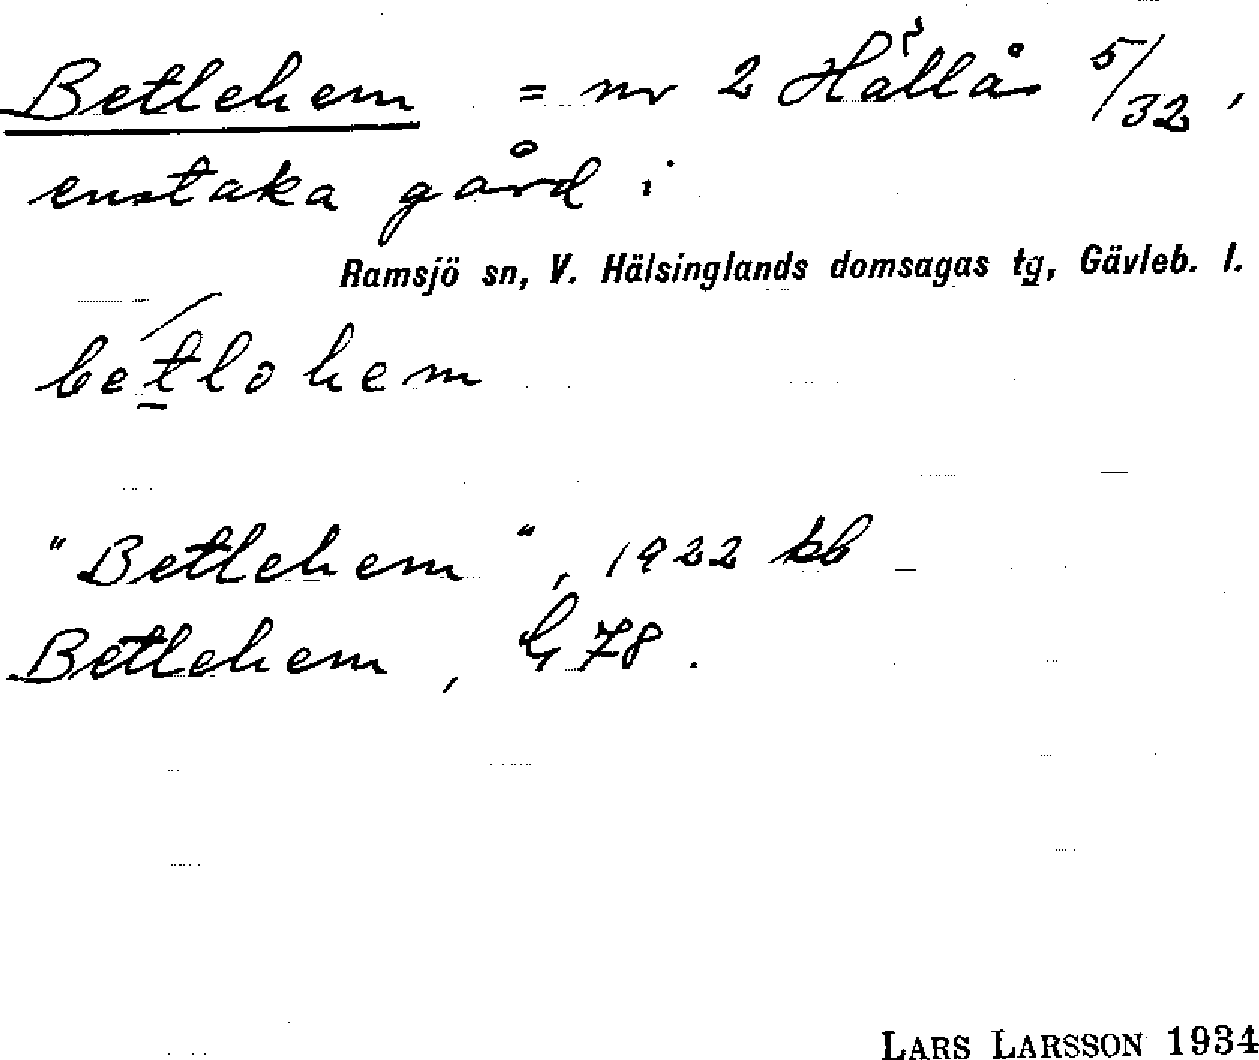 Betlehem = nr 2 Hållås 5/32,
enstaka gård i
Ramsjö sn, V. Hälsinglands domsagas tg, Gävleb. l.
betlohem
"Betlehem", 1922 kb
Betlehem, G 78.
LARS LARSSON 1934